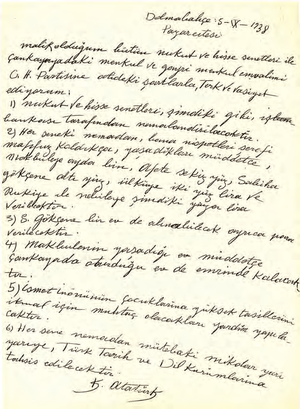 Dolmabahçe: 5-IX-1938
Pazartesi
malik olduğum bütün nukut ve hisse senetleri ile
Çankayadaki menkul ve gayri menkul emvalimi
C. H. Partisine atideki şartlarla, terk ve vasiyet
ediyorum:
1) nukut ve hisse senetleri, şimdiki gibi, iş
bankası tarafından nemalandırılacaktır.
2) Her seneki nemadan, bana nispetleri şerefi
mahfuz kaldıkça, yaşadıkları müddetçe,
Makbuleye ayda bin, Afete sekiz yüz, Sabiha
gökçene altı yüz, ülküye iki yüz lira ve
Rukiye ile nebileye şimdiki yüzer lira
verilecektir.
3) S. gökçene bir ev de alınabilecek ayrıca para
verilecektir.
4) Makbulenin yaşadığı müddetçe
Çankayada oturduğu ev de emrinde kalacak
tır.
5) ismet inönünün çocuklarına yüksek tahsillerini
ikmal için muhtaç olacakları yardım yapıla
caktır.
6) Her sene nemadan mütebaki miktar yarı
yarıya, Türk Tarih ve Dil Kurumlarına
tahsis edilecektir.
K. Atatürk